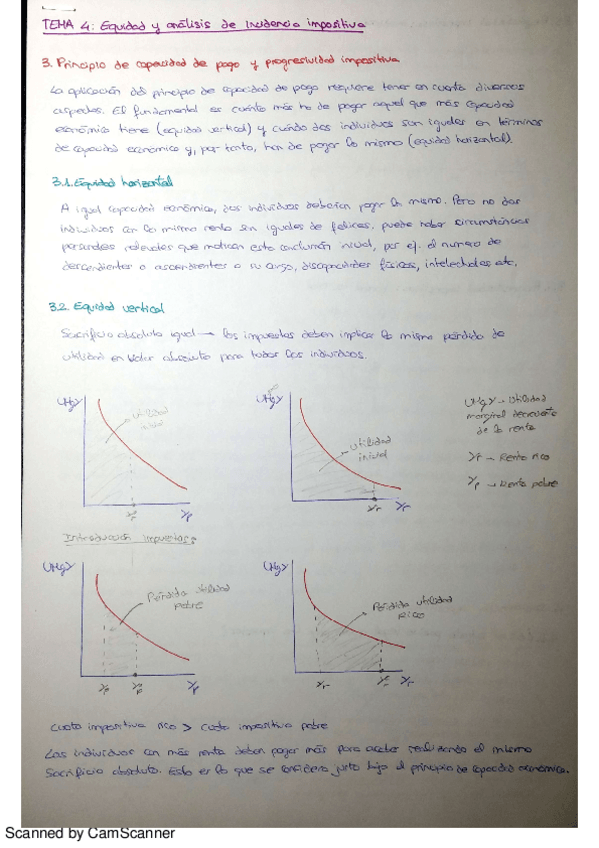 TEMA 4: Equidad y análisis de Incidencia impositiva
3. Principio de capacidad de pago y progresividad impositiva
La aplicación del principio de capacidad de pago requiere tener en cuenta diversos
aspectos. El fundamental es cuánto más ha de pagar aquel que más capacidad
económica tiene (equidad vertical) y cuándo dos individuos son iguales en términos
de capacidad económica y, por tanto, han de pagar lo mismo (equidad horizontal).
3.1. Equidad horizontal
A igual capacidad económica, dos individuos deberían pagar lo mismo. Pero no dos
individuos con la misma renta son iguales de felices, puede haber circunstancias
personales relevantes que maticen esta conclusión inicial, por ej. el numero de
descendientes o ascendientes a su cargo, discapacidades físicas, intelectuales etc.
3.2. Equidad vertical
Sacrificio absoluto igual → los impuestos deben implicar la misma pérdida de
utilidad en valor absoluto para todos los individuos.
UMgY
utilidad
inicial
Yp
Yp
UMgY
utilidad
inicial
Yr
Yr
UMgY → Utilidad
marginal decreciente
de la renta
Yr → Renta rico
Yp → Renta pobre
Introducción impuestos:
UMgY
Pérdida utilidad
pobre
Yp
Yp
Yp
UMgY
Pérdida utilidad
rico
Yr
Yr
Yr
Cuota impositiva rico > cuota impositiva pobre
Los individuos con más renta deben pagar más para acabar realizando el mismo
Sacrificio absoluto. Esto es lo que se considera justo bajo el principio de capacidad económica.
Scanned by CamScanner